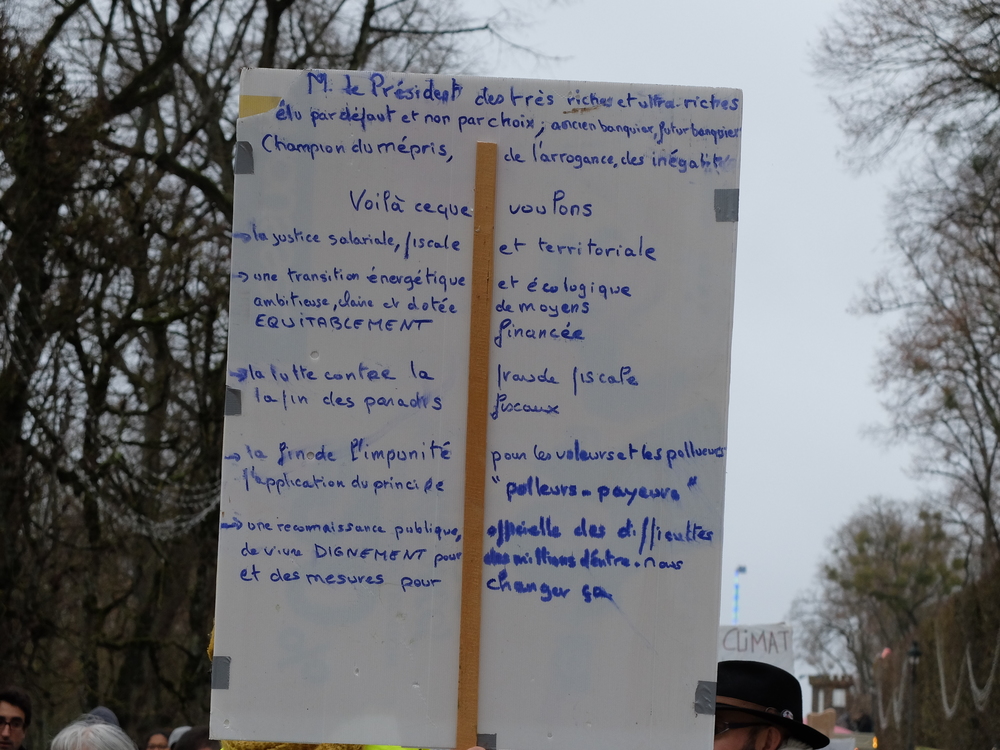 M. le Président des très riches et ultra-riches
élu par défaut et non par choix ; ancien banquier, futur banquier
Champion du mépris, de l'arrogance, des inégalités
Voilà ce que voulons
→ la justice salariale, fiscale et territoriale
→ une transition énergétique et écologique
ambitieuse, claire et dotée de moyens
EQUITABLEMENT financée
→ la lutte contre la fraude fiscale
la fin des paradis fiscaux
→ la fin de l'impunité pour les voleurs et les pollueurs
l'application du principe "polleurs - payeurs"
→ une reconnaissance publique, officielle des difficultés
de vivre DIGNEMENT pour des millions d'entre nous
et des mesures pour changer ça
CLIMAT